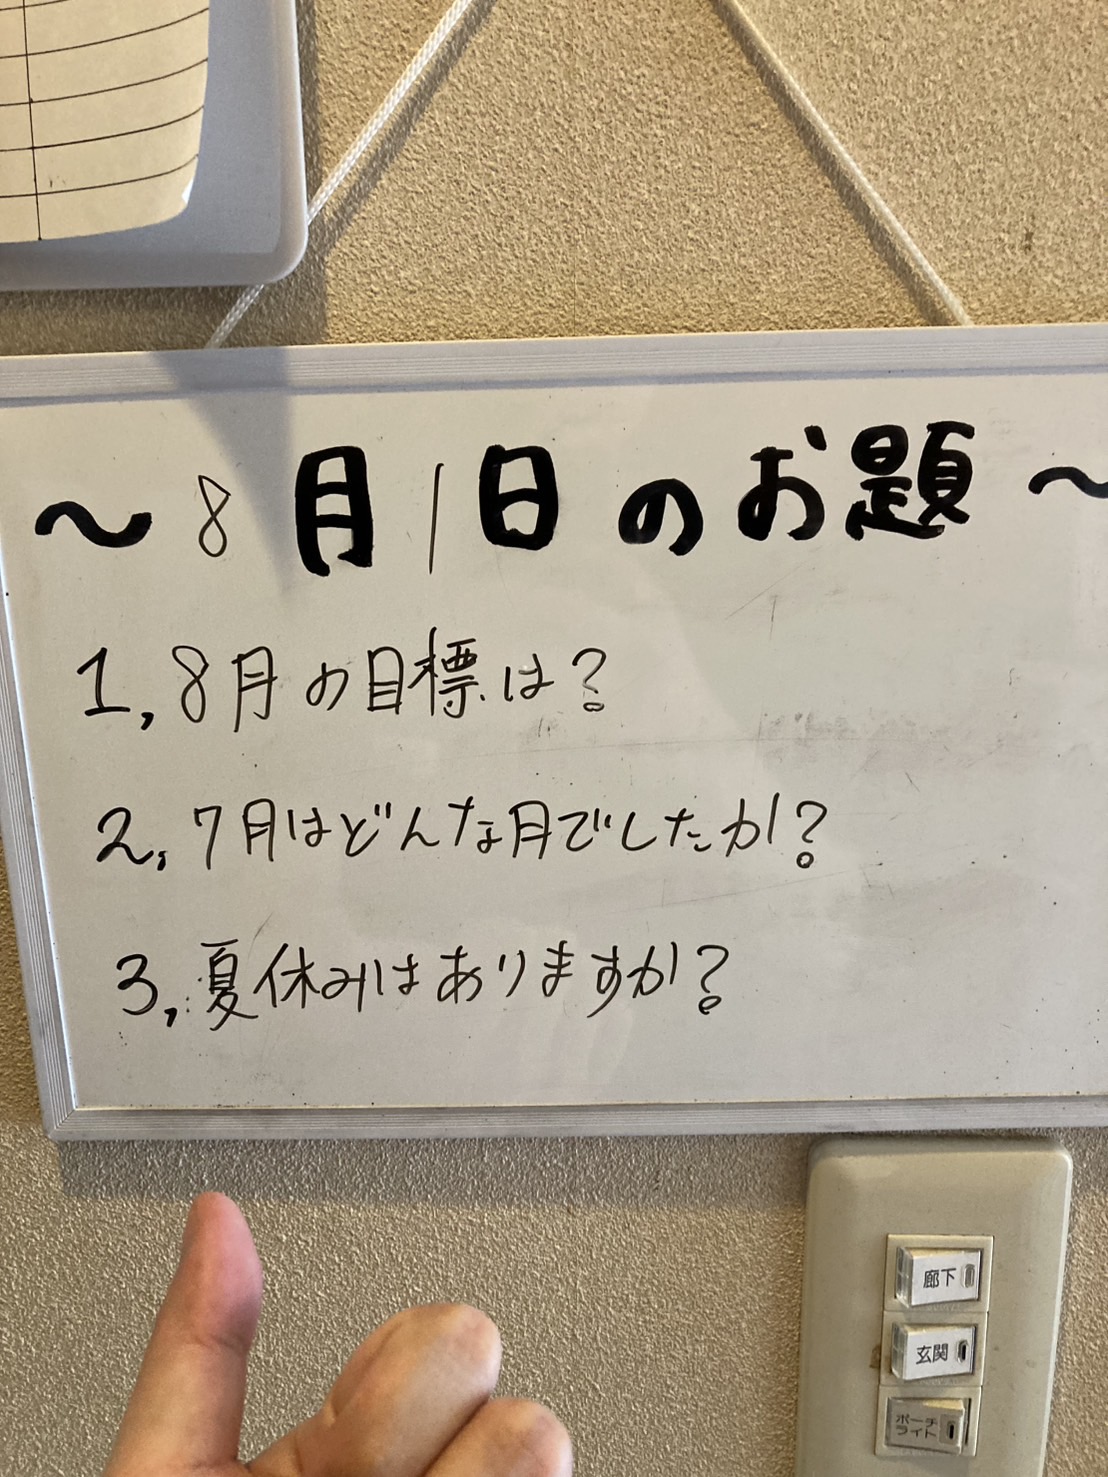 ～8月1日のお題～
1,8月の目標は?
2,7月はどんな月でしたか?
3,夏休みはありますか?
廊下
玄関
ポーチ
ライト